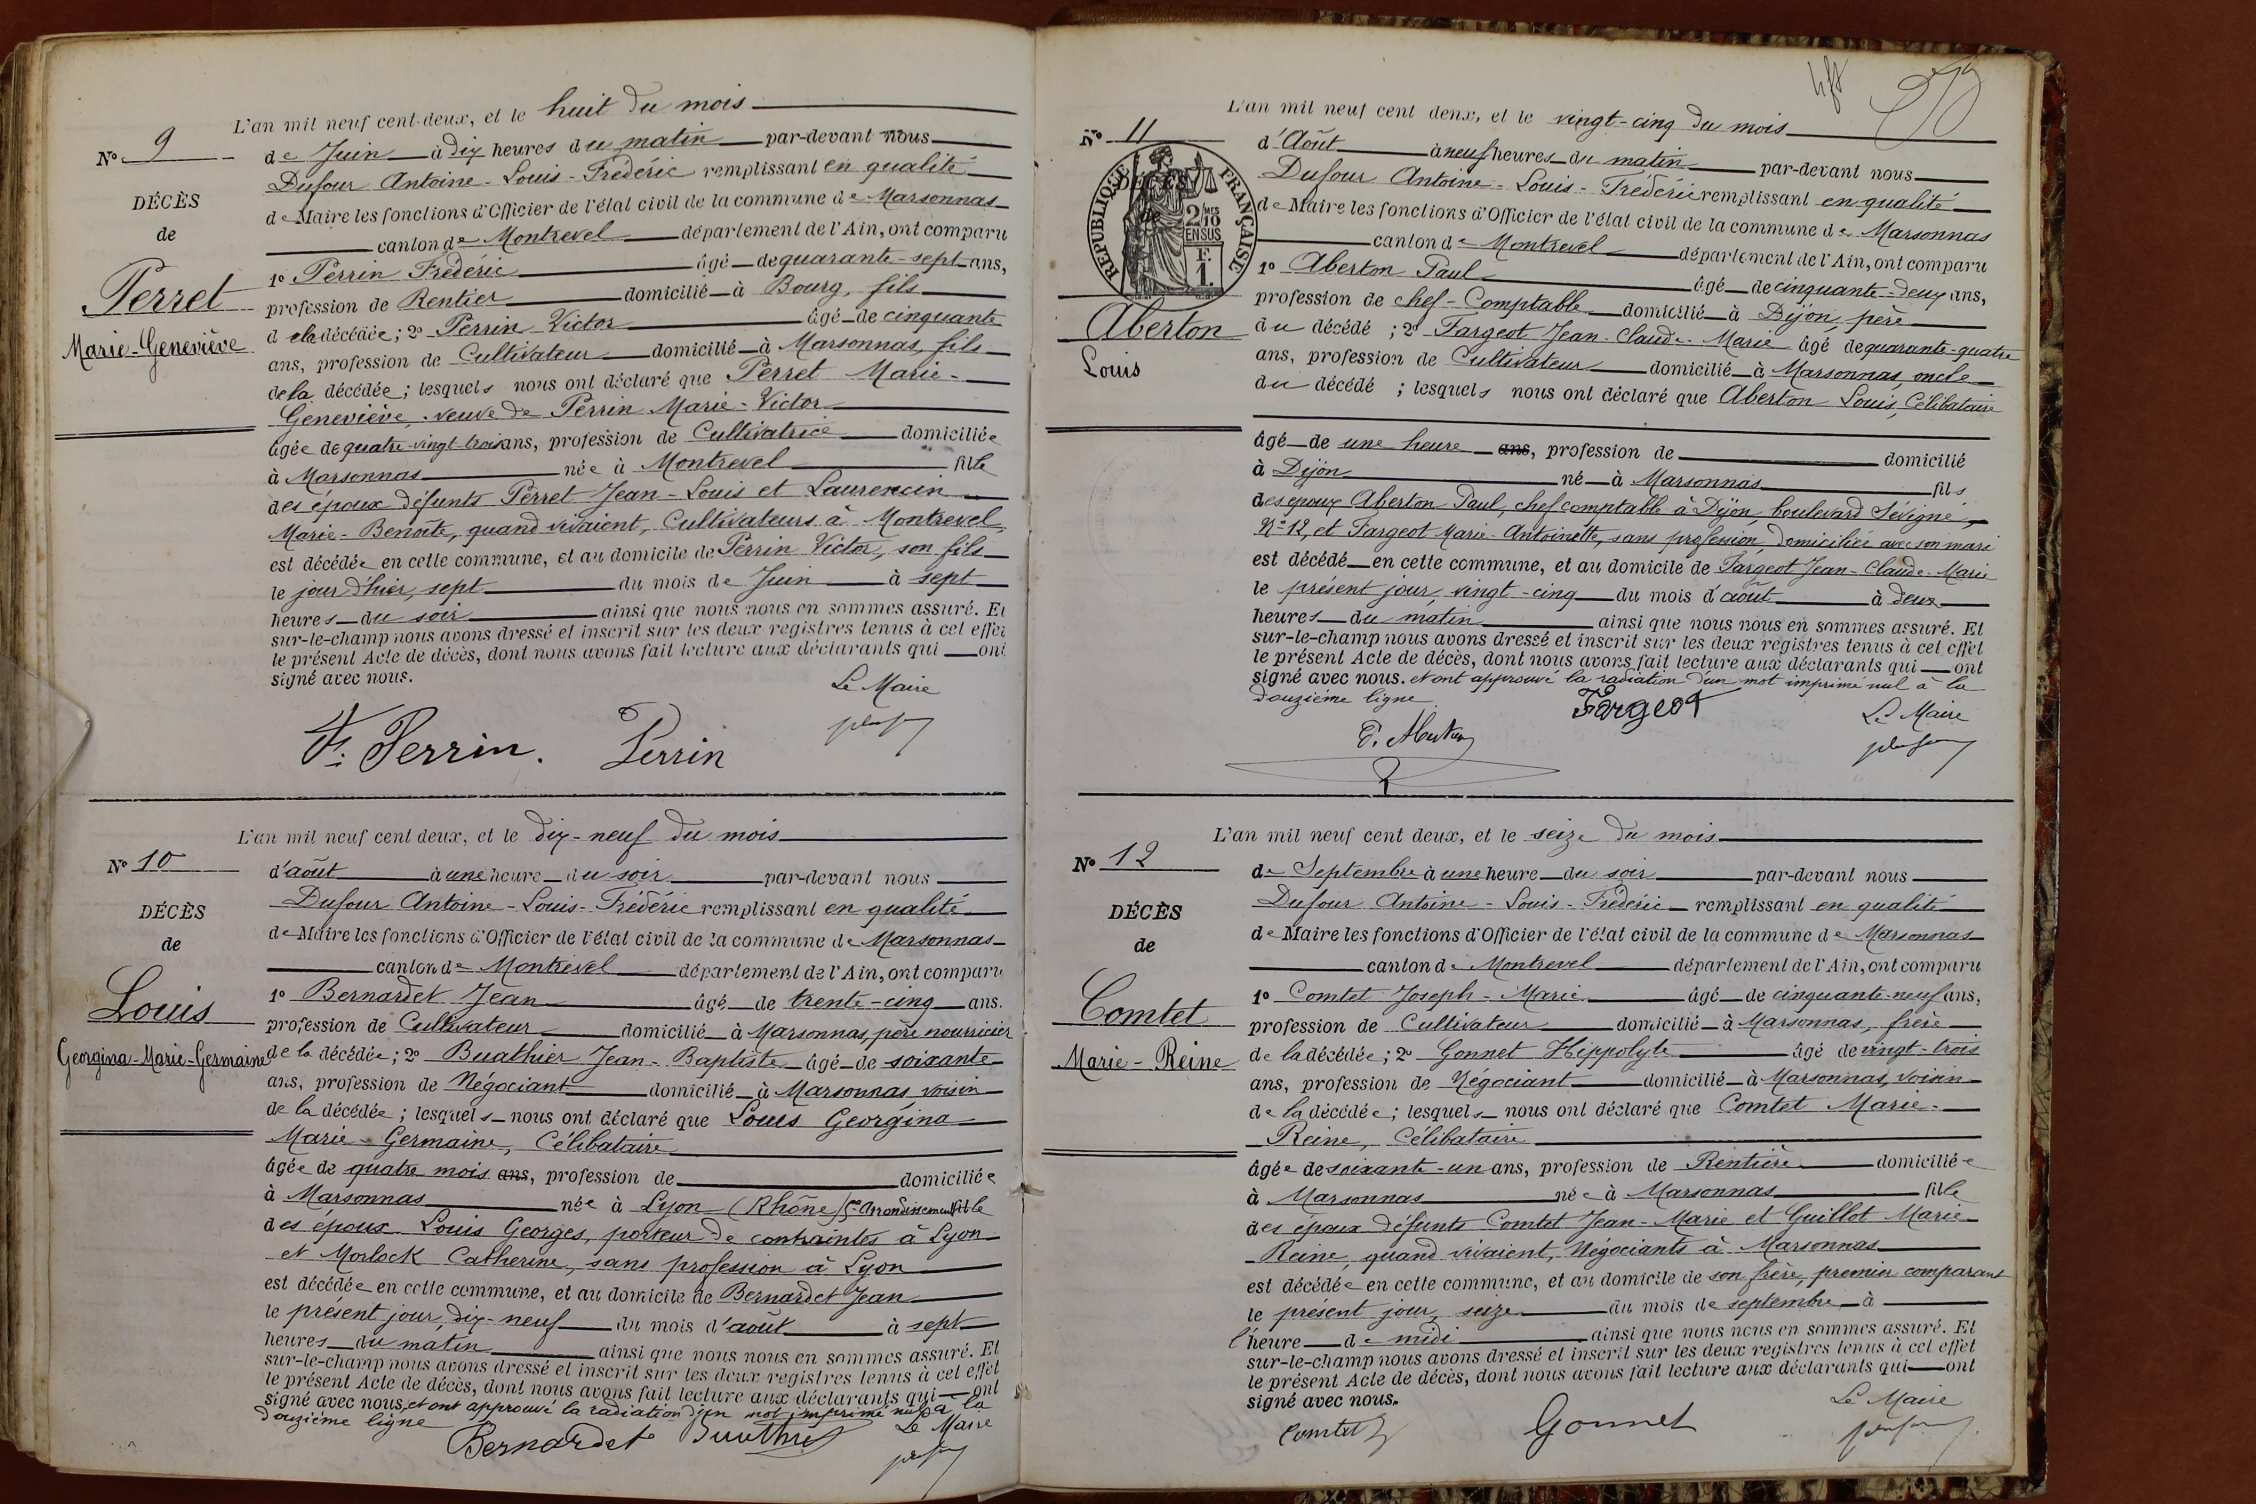 L'an mil neuf cent deux, et le huit du mois
N° 9
de Juin à dix heures du matin par-devant nous
Dufour Antoine-Louis-Frédéric remplissant en qualité
DÉCÈS
de Maire les fonctions d'Officier de l'état civil de la commune de Marsonnas
de
canton de Montrevel département de l'Ain, ont comparu
1° Perrin Frédéric âgé de quarante-sept ans,
Perret
profession de Rentier domicilié à Bourg, fils
Marie-Geneviève
de la décédée; 2° Perrin Victor âgé de cinquante
ans, profession de Cultivateur domicilié à Marsonnas, fils
de la décédée; lesquels nous ont déclaré que Perret Marie-
Geneviève, veuve de Perrin Marie-Victor
âgée de quatre-vingt-trois ans, profession de Cultivatrice domiciliée
à Marsonnas née à Montrevel fille
des époux défunts Perret Jean-Louis et Laurencin
Marie-Benoîte, quand vivaient, Cultivateurs à Montrevel,
est décédée en cette commune, et au domicile de Perrin Victor, son fils
le jour d'hier, sept du mois de Juin à sept
heures du soir ainsi que nous nous en sommes assuré. Et
sur-le-champ nous avons dressé et inscrit sur les deux registres tenus à cet effet
le présent Acte de décès, dont nous avons fait lecture aux déclarants qui ont
signé avec nous.
Le Maire
F. Perrin. Perrin
L'an mil neuf cent deux, et le dix-neuf du mois
N° 10
d'août à une heure du soir par-devant nous
DÉCÈS
Dufour Antoine-Louis-Frédéric remplissant en qualité
de
de Maire les fonctions d'Officier de l'état civil de la commune de Marsonnas
canton de Montrevel département de l'Ain, ont comparu
Louis
1° Bernardet Jean âgé de trente-cinq ans.
profession de Cultivateur domicilié à Marsonnas, père nourricier
Georgina-Marie-Germaine
de la décédée; 2° Buathier Jean-Baptiste âgé de soixante
ans, profession de Négociant domicilié à Marsonnas, voisin
de la décédée; lesquels nous ont déclaré que Louis Georgina
Marie-Germaine, Célibataire
âgée de quatre mois ans, profession de domiciliée
à Marsonnas née à Lyon (Rhône) arrondissement fille
des époux Louis Georges, porteur de contraintes à Lyon
et Morlock Catherine, sans profession à Lyon
est décédée en cette commune, et au domicile de Bernardet Jean
le présent jour, dix-neuf du mois d'août à sept
heures du matin ainsi que nous nous en sommes assuré. Et
sur-le-champ nous avons dressé et inscrit sur les deux registres tenus à cet effet
le présent Acte de décès, dont nous avons fait lecture aux déclarants qui ont
signé avec nous, et ont approuvé la radiation d'un mot imprimé nul à la
douzième ligne
Le Maire
Bernardet Buathier
L'an mil neuf cent deux, et le vingt-cinq du mois
N° 11
d'Août à neuf heures du matin par-devant nous
DÉCÈS
Dufour Antoine-Louis-Frédéric remplissant en qualité
de
RÉPUBLIQUE FRANÇAISE
2/10 EN SUS
F. 1.
de Maire les fonctions d'Officier de l'état civil de la commune de Marsonnas
canton de Montrevel département de l'Ain, ont comparu
1° Aberton Paul âgé de cinquante-deux ans,
Aberton
profession de chef-Comptable domicilié à Dijon, père
Louis
du décédé; 2° Fargeot Jean-Claude-Marie âgé de quarante-quatre
ans, profession de Cultivateur domicilié à Marsonnas, oncle
du décédé; lesquels nous ont déclaré que Aberton Louis, Célibataire
âgé de une heure ans, profession de domicilié
à Dijon né à Marsonnas fils
des époux Aberton Paul, chef comptable à Dijon, boulevard Sévigné,
N° 12, et Fargeot Marie-Antoinette, sans profession, domiciliée avec son mari
est décédé en cette commune, et au domicile de Fargeot Jean-Claude-Marie
le présent jour, vingt-cinq du mois d'août à deux
heures du matin ainsi que nous nous en sommes assuré. Et
sur-le-champ nous avons dressé et inscrit sur les deux registres tenus à cet effet
le présent Acte de décès, dont nous avons fait lecture aux déclarants qui ont
signé avec nous. et ont approuvé la radiation d'un mot imprimé nul à la
douzième ligne.
Fargeot
Le Maire
P. Aberton
L'an mil neuf cent deux, et le seize du mois
N° 12
de Septembre à une heure du soir par-devant nous
DÉCÈS
Dufour Antoine-Louis-Frédéric remplissant en qualité
de
de Maire les fonctions d'Officier de l'état civil de la commune de Marsonnas
canton de Montrevel département de l'Ain, ont comparu
Comtet
1° Comtet Joseph-Marie âgé de cinquante-neuf ans,
profession de Cultivateur domicilié à Marsonnas, frère
Marie-Reine
de la décédée; 2° Gonnet Hippolyte âgé de vingt-trois
ans, profession de Négociant domicilié à Marsonnas, voisin
de la décédée; lesquels nous ont déclaré que Comtet Marie-
Reine, Célibataire
âgée de soixante-un ans, profession de Rentière domiciliée
à Marsonnas née à Marsonnas fille
des époux défunts Comtet Jean-Marie et Guillot Marie-
Reine, quand vivaient, Négociants à Marsonnas
est décédée en cette commune, et au domicile de son frère, premier comparant
le présent jour, seize du mois de septembre à
l'heure de midi ainsi que nous nous en sommes assuré. Et
sur-le-champ nous avons dressé et inscrit sur les deux registres tenus à cet effet
le présent Acte de décès, dont nous avons fait lecture aux déclarants qui ont
signé avec nous.
Le Maire
Comtet Gonnet